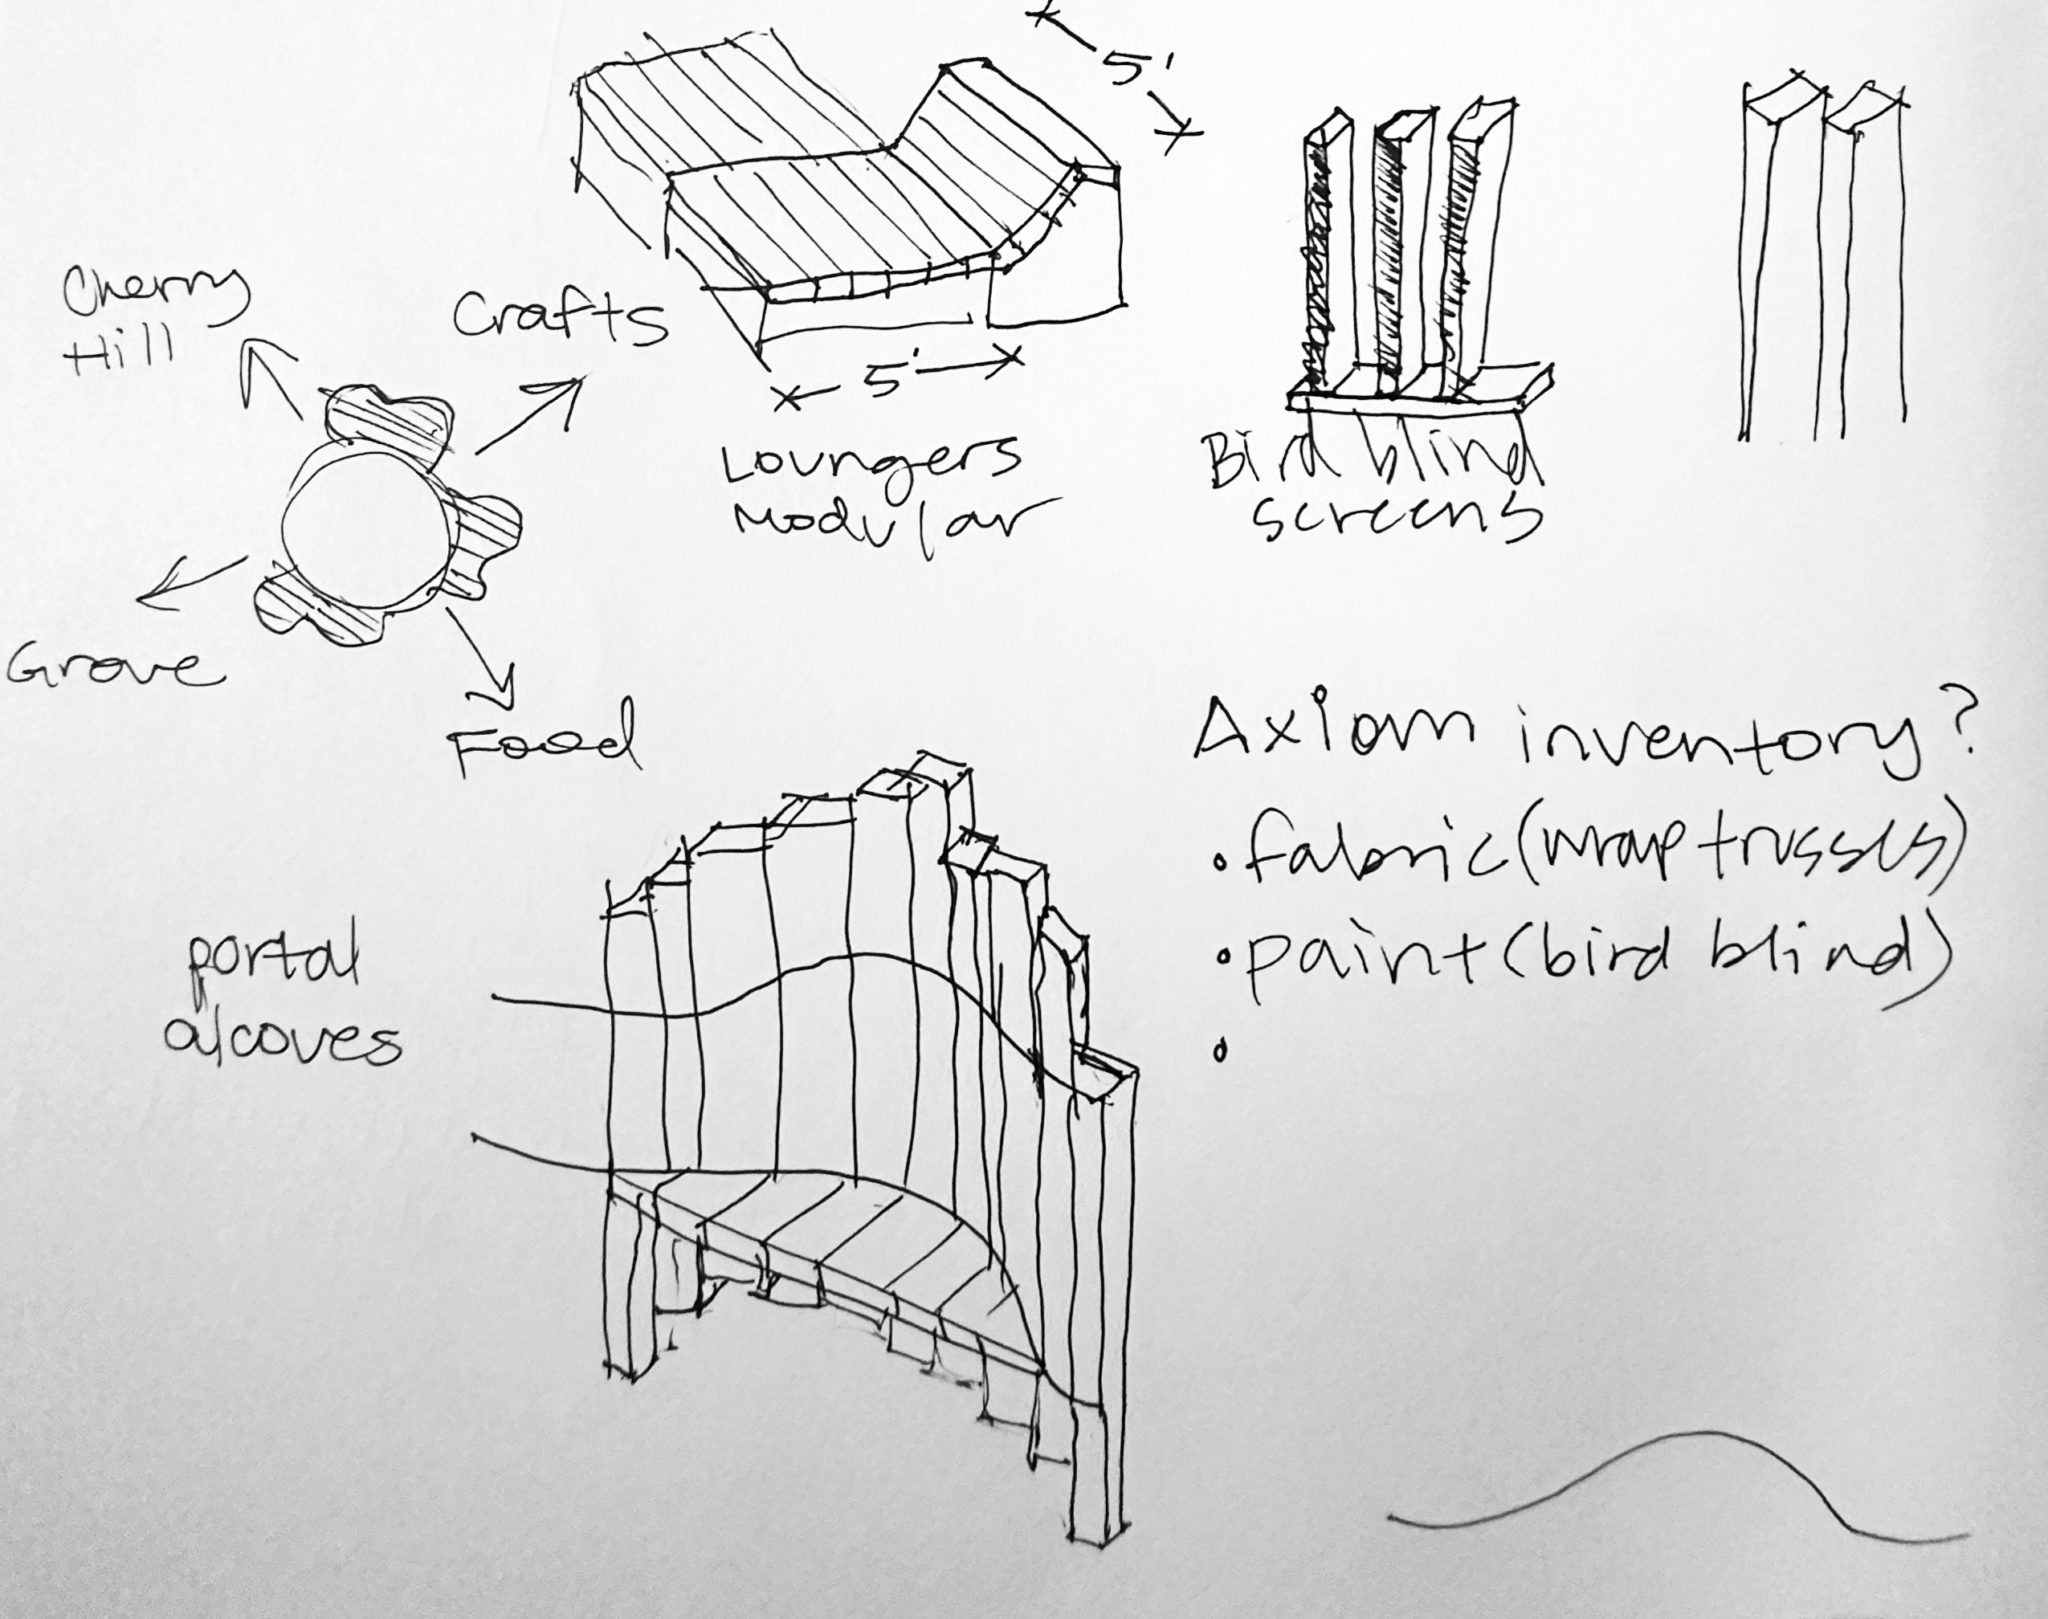 5'
Cherry
Hill
Crafts
5'
Loungers
Modular
Bird blind
screens
Grove
Food
Axiom inventory?
• fabric (wrap trusses)
• paint (bird blind)
•
portal
alcoves